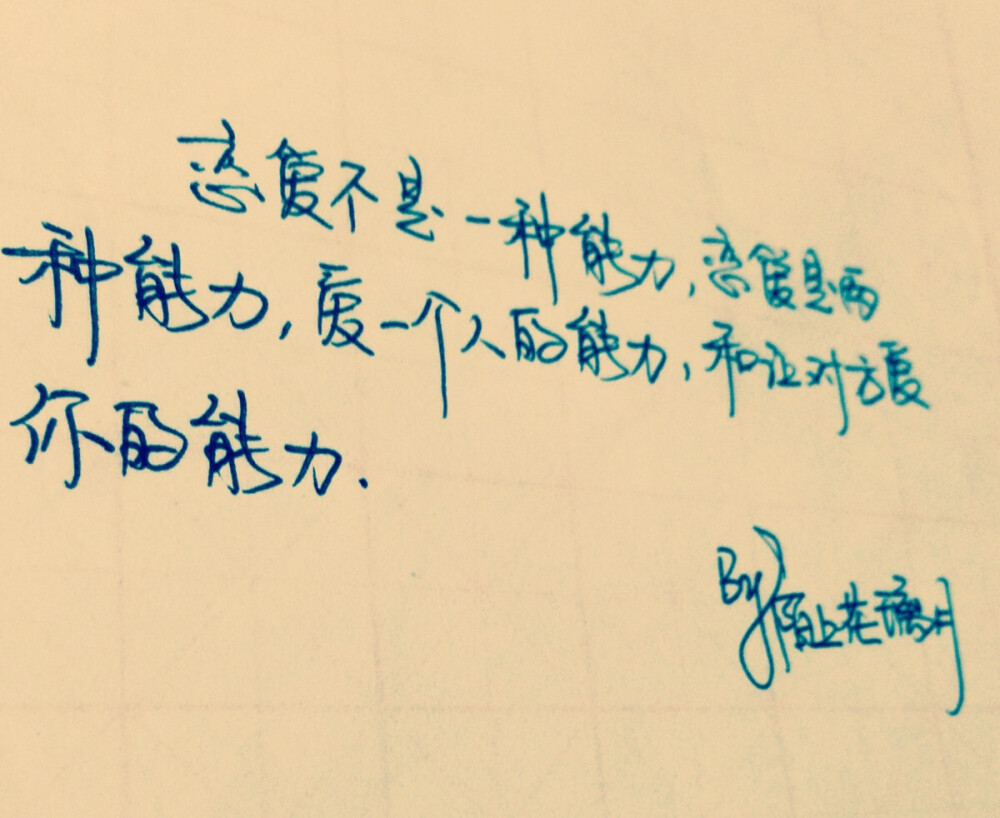 恋爱不是一种能力,恋爱是两
种能力,爱一个人的能力,和让对方爱
你的能力.
By陌上花璃月